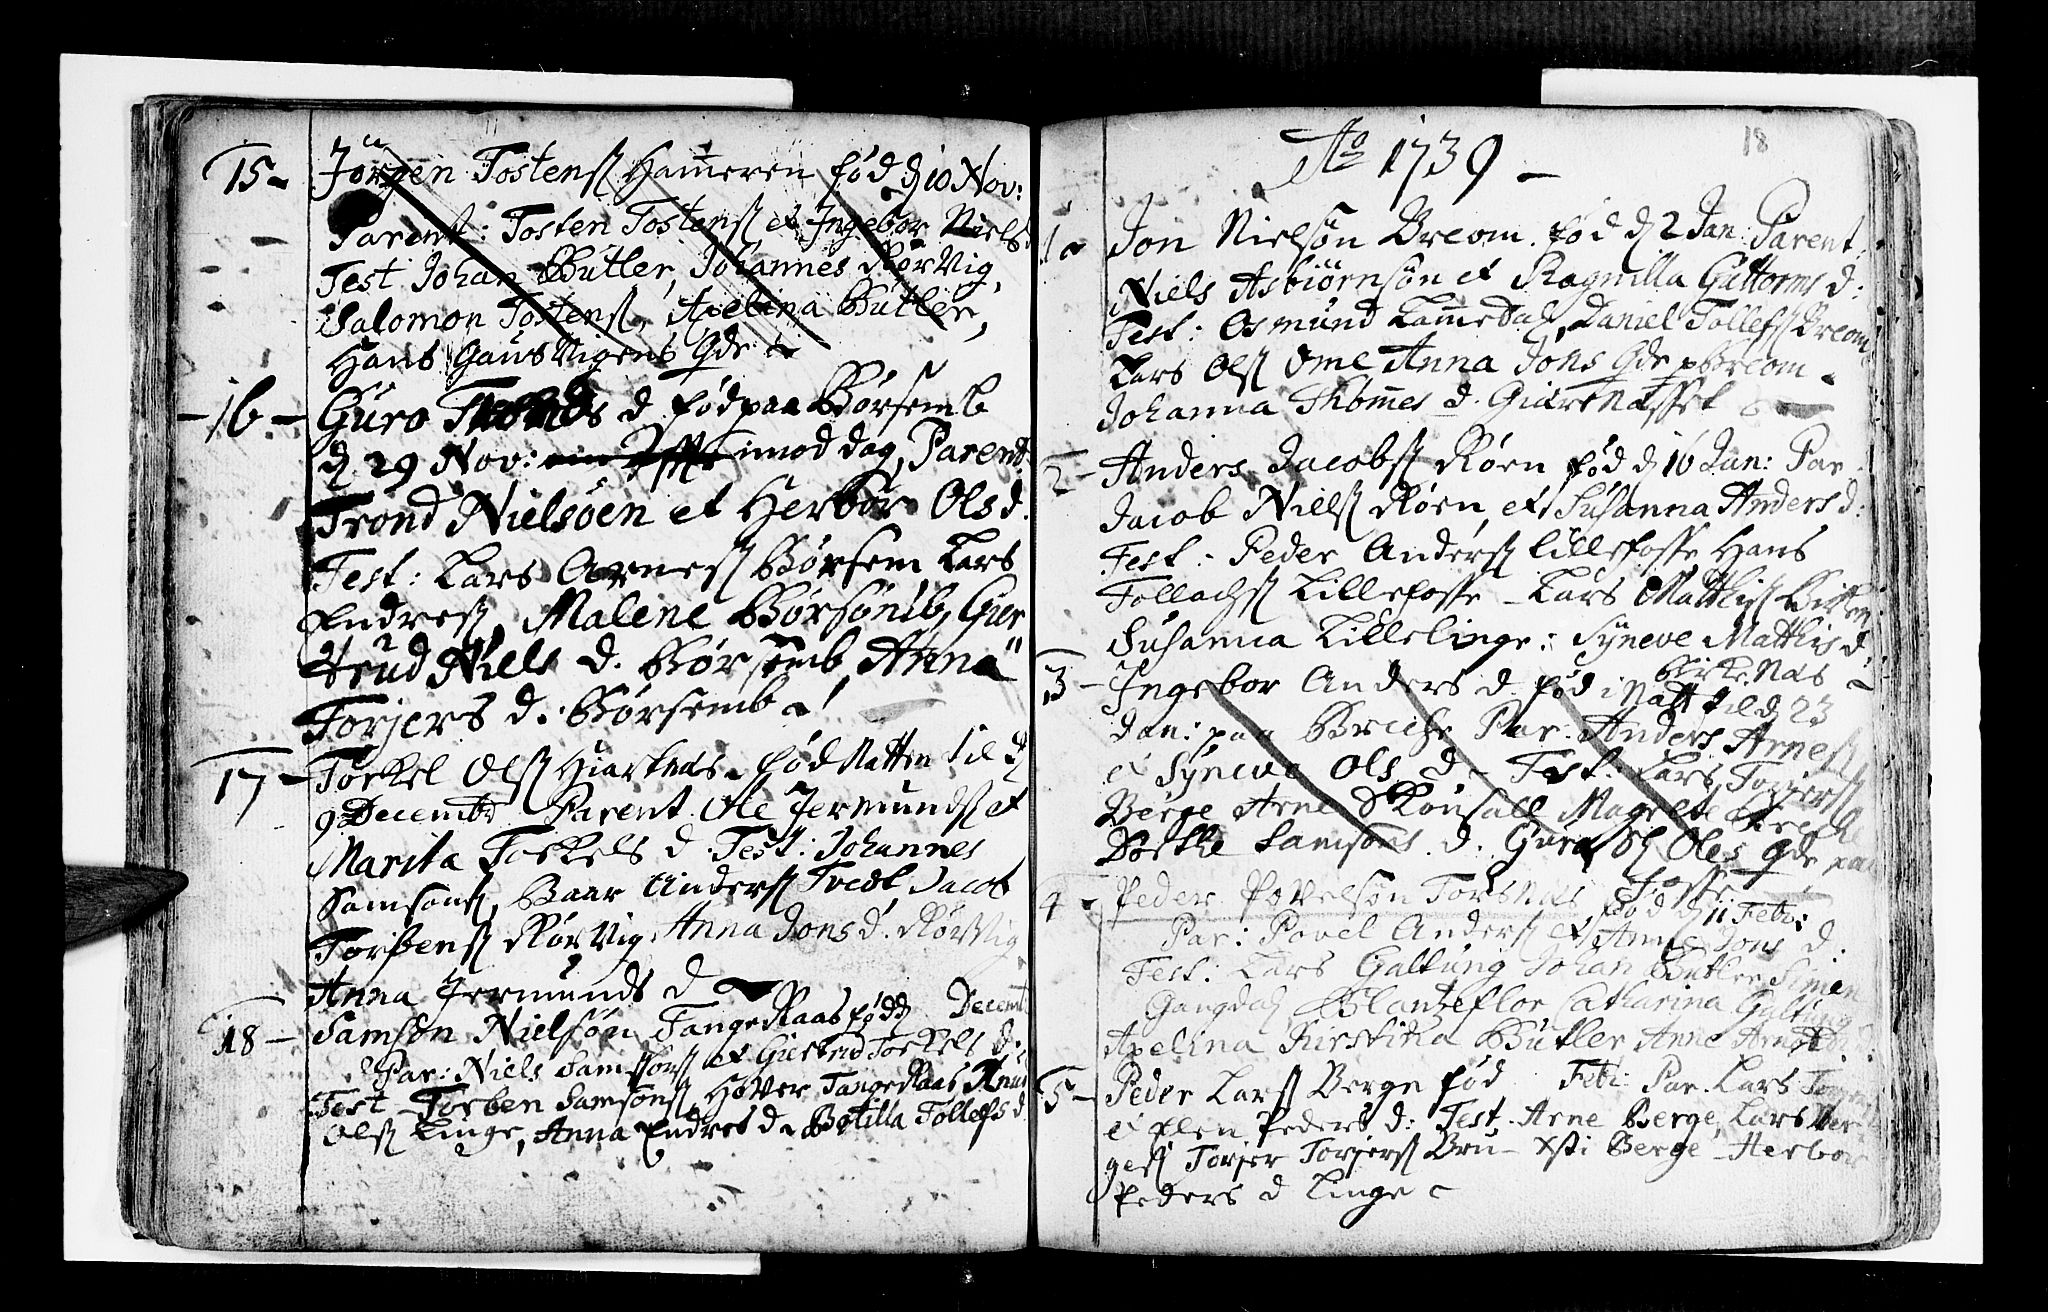 15 - Jørgen Tostens Ham̄eren fød d 10 Nov:
Parent: Tosten Tostens et Ingebor Niels
Test Johan Bütler, Johannes Rørvig,
Salomon Tostens, Axelina Bütler,
Hans Gausvigens Qde
- 16 - Guro d fød paa Børsemb
d 29 Nov: imod dag, Parent
Trond Nielsøen et Herbor Olsd.
Test: Lars Arnes Børsem Lars
Endres, Malene Børsønib, Gier
trud Niels d. Børsemb, Anna
Torjers d. Børsemb
17 - Torkel Ols Hiartnæs fød Natten til d
9 Decembr Parent. Ole Jermunds et
Marita Torkels d. Test: Johannes
Samsons, Baar Anders Tvedt, Jacob
Torbens Rørvig, Anna Jons d. Rørvig
Anna Jermunds d
18 - Samson Nielsøn TangeRaas fød d Decemb
Par: Niels Samsons et Giertrud Torkels d.
Test Torben Samsons, Hover TangeRaas Knud
Ols Linge, Anna Endres d. Botilla Tollefs d
18
Ao 1739 -
1 Jon Nielsøn Breom. fød d 2 Jan: Parent:
Niels Asbiørnsøn et Ragnilla Guttorms d:
Test: Osmund Lam̄edal, Daniel Tollefs Breom
Lars Ols Ome Anna Jons Qde Breom
Johanna Thom̄es d.
2 - Anders Jacobs Røen fød d 16 Jan: Par
Jacob Niels Røen et Susanna Anders d:
Test: Peder Anders Lillefosse Hans
Tollachs Lillefosse - Lars Matthis Birke
Susanna Lillelinge: Syneve Matthis d.
BirkeNæs
3 - Ingebor Anders d. fød i Natt til d 23
Jan: paa Par: Anders Arnes
et Syneve Ols d - Test: Lars Torjers
Berge Arne Magrete
Dorthe Samsons d. Guro Oles Qde paa
Fosse
4 - Peder Povelsøn Torsnæs fød d 11 Feb:
Par: Povel Anders et Anna Jons d.
Test: Lars Galtung Johan Butler Simen
Gangdal Blantzeflor Catharina Galtung
Axelina Kirstina Bütler Anne
5 - Peder Lars Berge fød Feb: Par. Lars
et Elen Peders d: Test. Arne Berge, Lars Ber-
ges Torjer Torjers Bru - Xsti Berge - Herbor
Peders d Linge